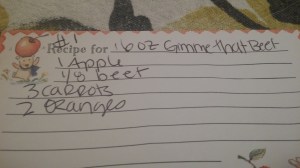 #1
Recipe for 16 oz Gimme that Beet
1 Apple
1/8 beet
3 carrots
2 Oranges